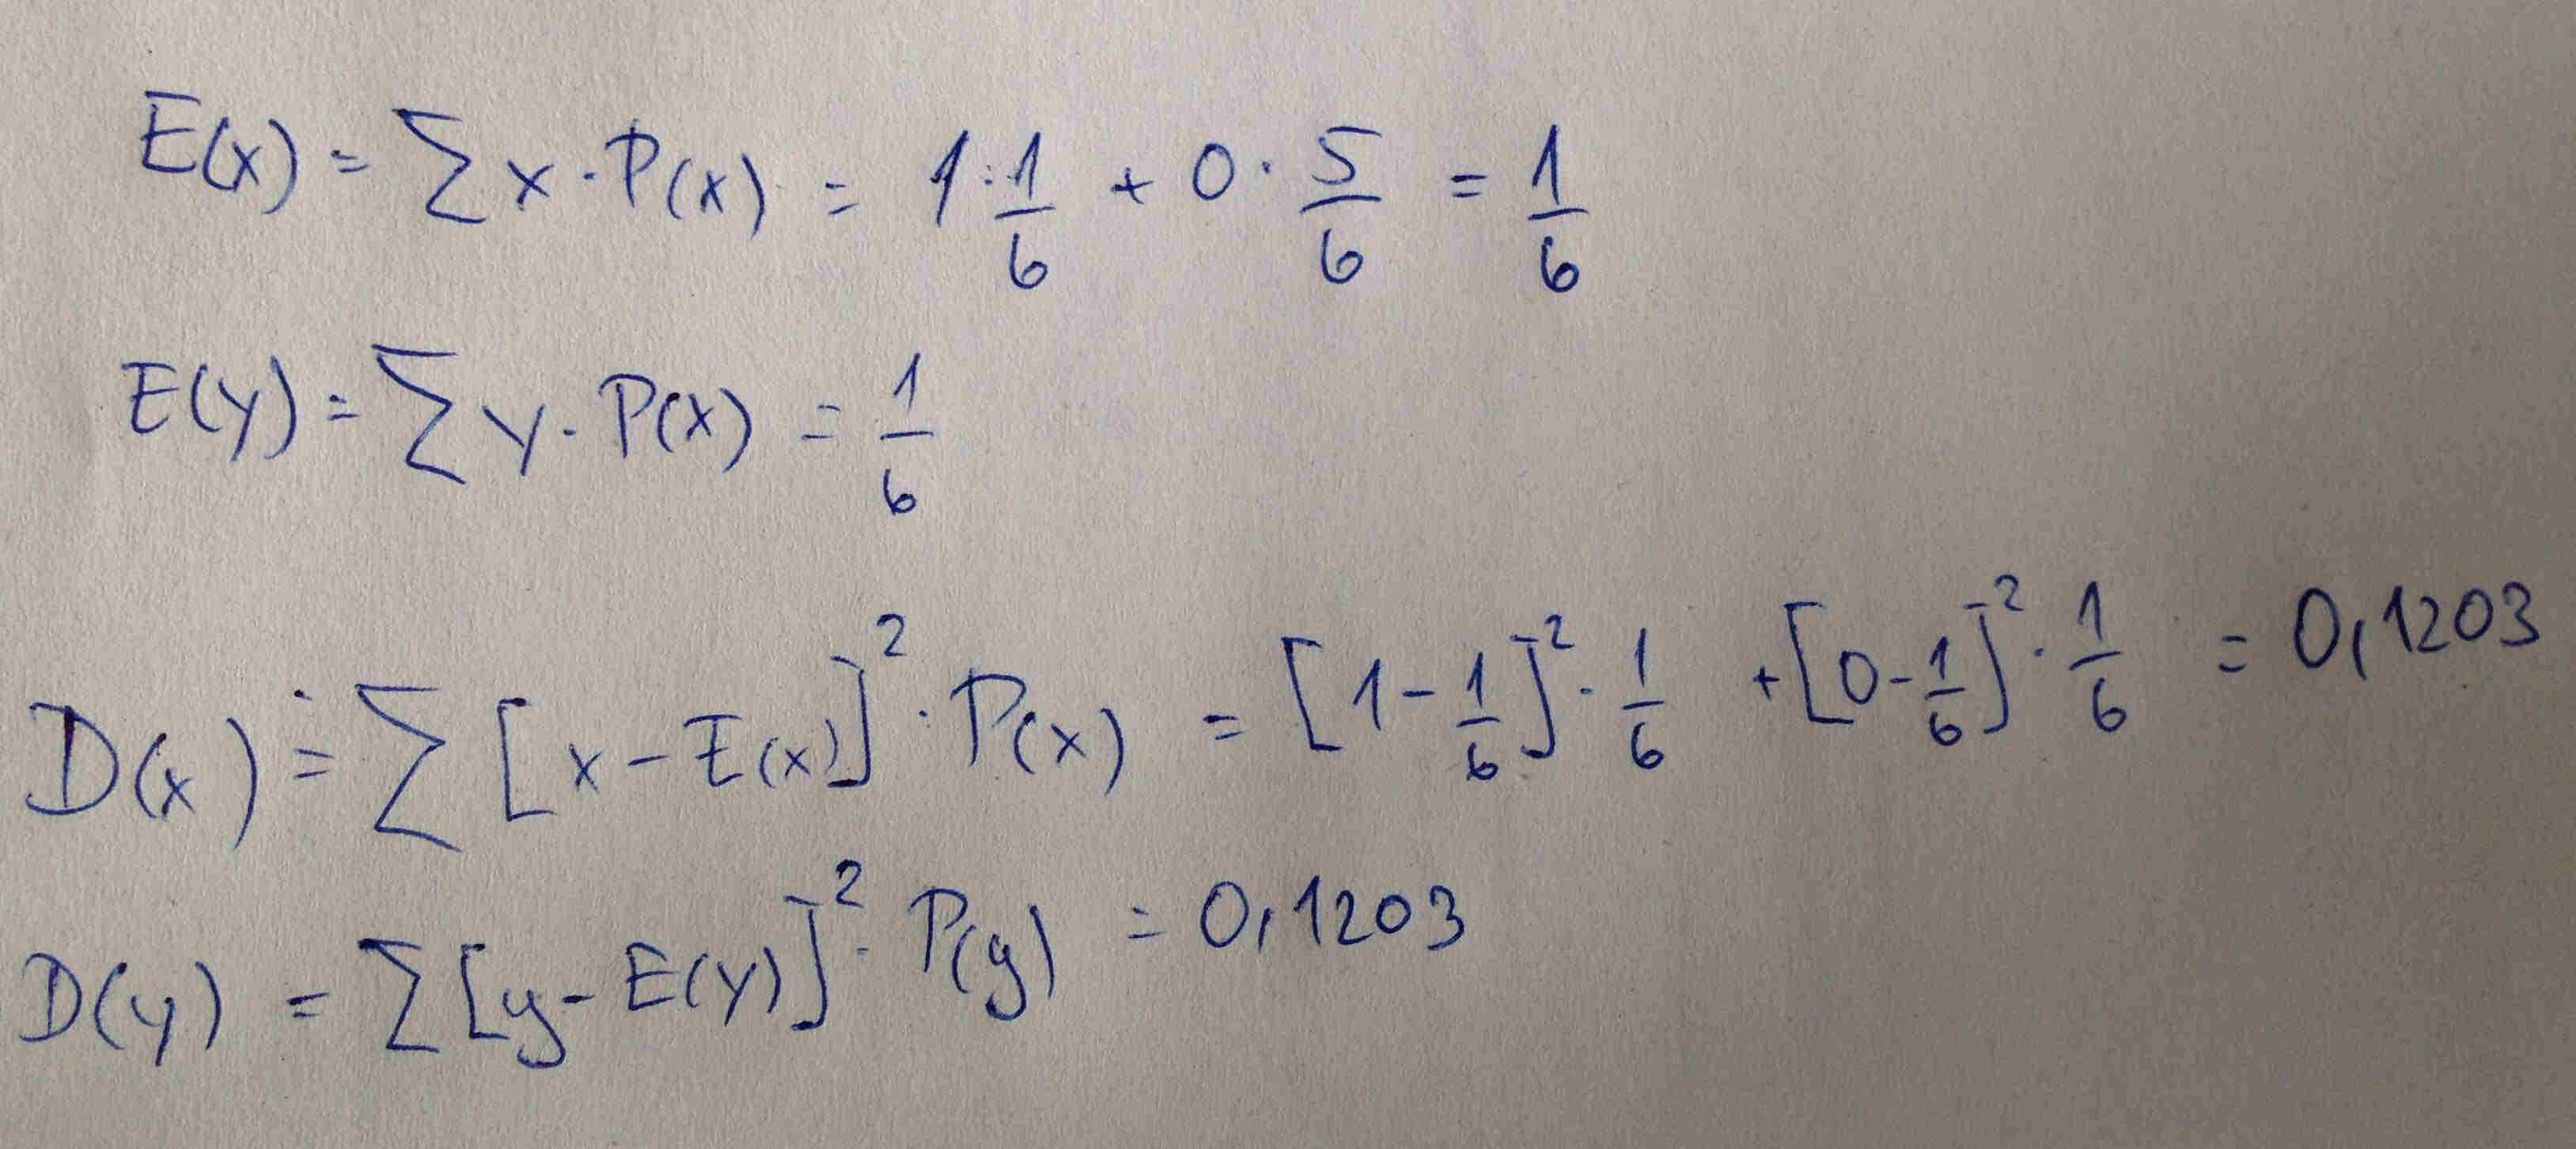 E(x) = ∑ x · P(x) = 1 · 1/6 + 0 · 5/6 = 1/6
E(y) = ∑ y · P(x) = 1/6
D(x) = ∑ [x - E(x)]² · P(x) = [1 - 1/6]² · 1/6 + [0 - 1/6]² · 1/6 = 0,1203
D(y) = ∑ [y - E(y)]² · P(y) = 0,1203